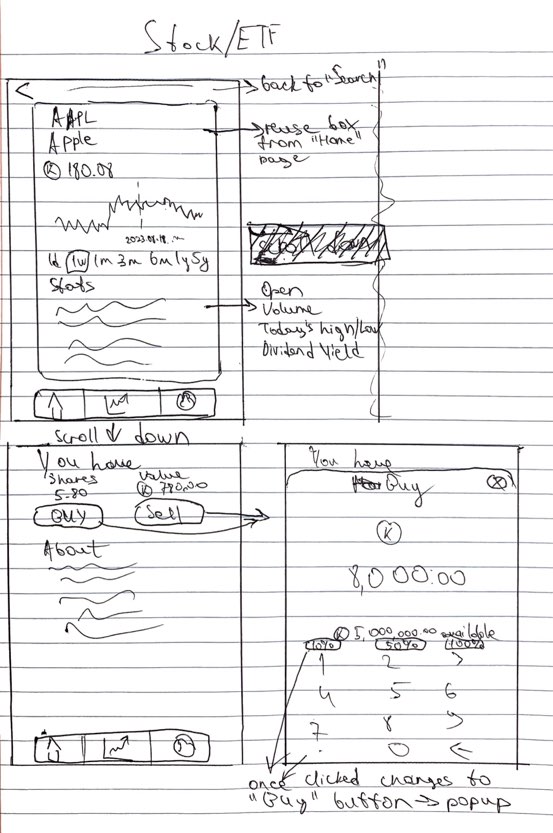 Stock/ETF
<
back to "Search"
AAPL
Apple
reuse box
from "Home"
page
K 180.08
2023.01.18.
1d 1w 1m 3m 6m 1y 5y
Stats
Open
Volume
Today's high/Low
Dividend Yield
scroll down
You have
Shares
Value
5.80
K 780.00
BUY
Sell
About
You have
Buy
X
K
8,000.00
K 5,000,000.00 available
10% 50% 100%
1 2 3
4 5 6
7 8 9
. 0 <
once clicked changes to
"Buy" button → popup